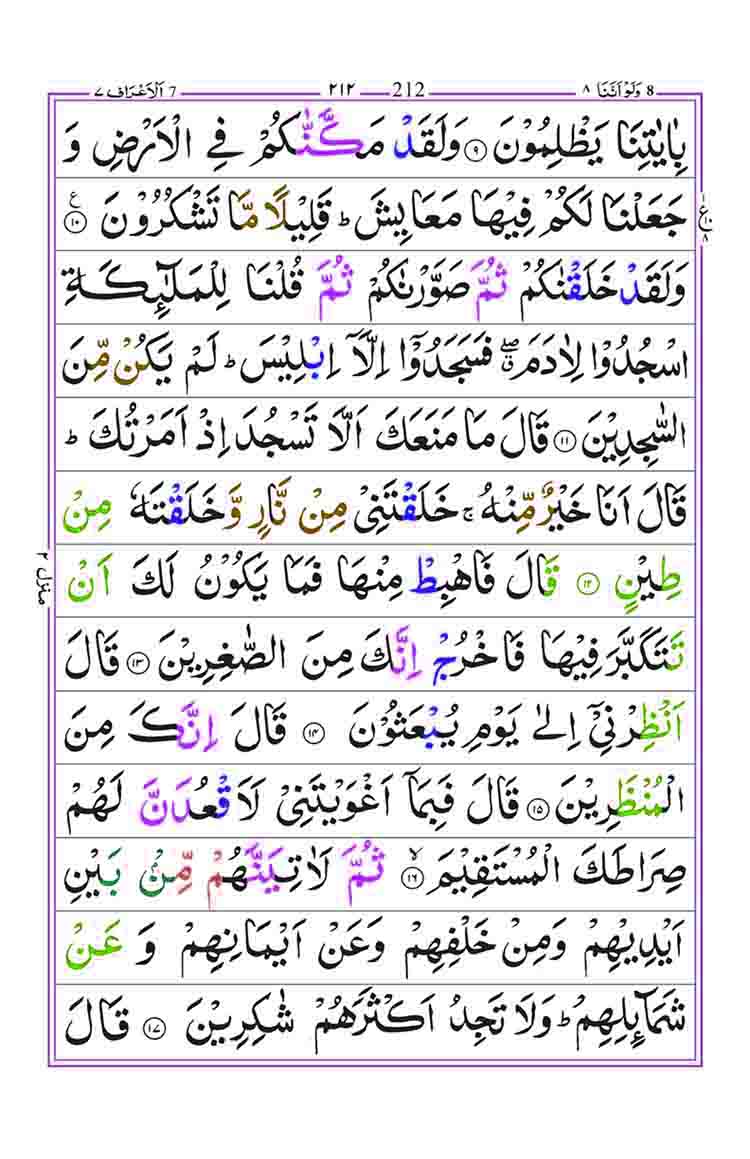 8 وَلَوْ اَنَّنَا ٨ 212 ٢١٢ 7 اَلْاَعْرَاف ٧
بِاٰيٰتِنَا يَظْلِمُوْنَ ۝٩ وَلَقَدْ مَكَّنّٰكُمْ فِي الْاَرْضِ وَ
جَعَلْنَا لَكُمْ فِيْهَا مَعَايِشَ ؕ قَلِيْلًا مَّا تَشْكُرُوْنَ ۝١٠ ع
وَلَقَدْ خَلَقْنٰكُمْ ثُمَّ صَوَّرْنٰكُمْ ثُمَّ قُلْنَا لِلْمَلٰٓئِكَةِ
اسْجُدُوْا لِاٰدَمَ ۖۗ فَسَجَدُوْۤا اِلَّاۤ اِبْلِيْسَ ؕ لَمْ يَكُنْ مِّنَ
السّٰجِدِيْنَ ۝١١ قَالَ مَا مَنَعَكَ اَلَّا تَسْجُدَ اِذْ اَمَرْتُكَ ؕ
قَالَ اَنَا خَيْرٌ مِّنْهُ ۚ خَلَقْتَنِيْ مِنْ نَّارٍ وَّخَلَقْتَهٗ مِنْ
طِيْنٍ ۝١٢ قَالَ فَاهْبِطْ مِنْهَا فَمَا يَكُوْنُ لَكَ اَنْ
تَتَكَبَّرَ فِيْهَا فَاخْرُجْ اِنَّكَ مِنَ الصّٰغِرِيْنَ ۝١٣ قَالَ
اَنْظِرْنِيْۤ اِلٰى يَوْمِ يُبْعَثُوْنَ ۝١٤ قَالَ اِنَّكَ مِنَ
الْمُنْظَرِيْنَ ۝١٥ قَالَ فَبِمَاۤ اَغْوَيْتَنِيْ لَاَقْعُدَنَّ لَهُمْ
صِرَاطَكَ الْمُسْتَقِيْمَ ۝١٦ۙ ثُمَّ لَاٰتِيَنَّهُمْ مِّنْۢ بَيْنِ
اَيْدِيْهِمْ وَمِنْ خَلْفِهِمْ وَعَنْ اَيْمَانِهِمْ وَ عَنْ
شَمَآئِلِهِمْ ؕ وَلَا تَجِدُ اَكْثَرَهُمْ شٰكِرِيْنَ ۝١٧ قَالَ
ع ٨
منزل ٢